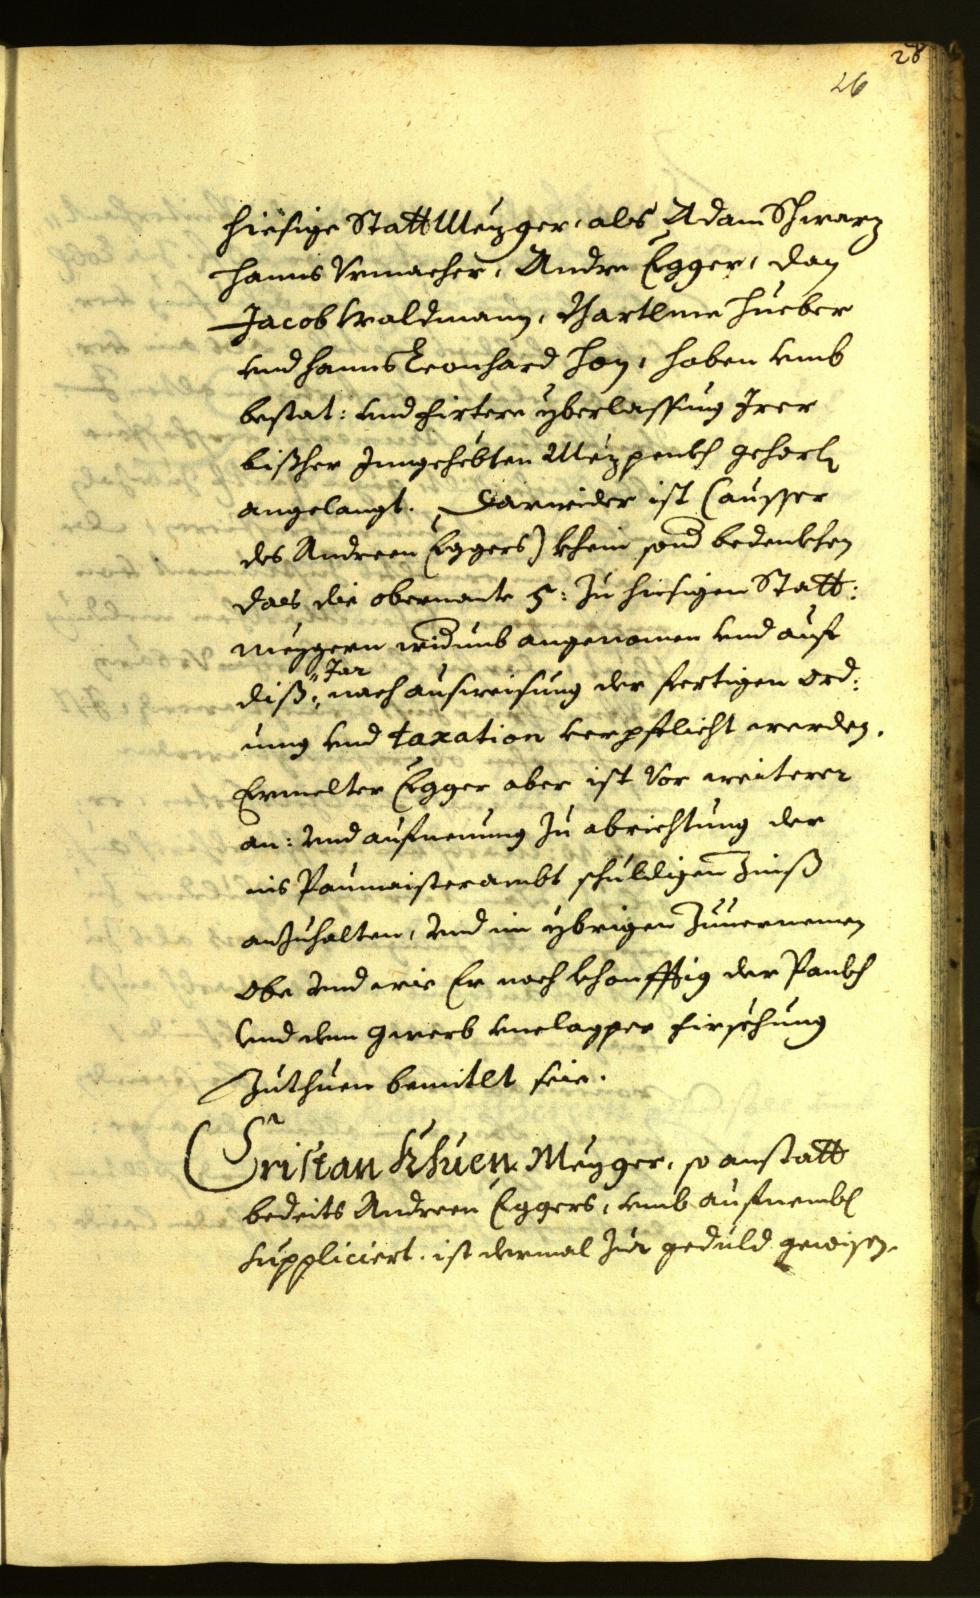 28
26
hiesige Statt Mezger, als Adam Schwarz
Hanns Vrmacher, Andre Egger, dan
Jacob Waldmann, Bartlme Hueber
vnd Hanns Leonhard Hoy, haben vmb
bestat: vnd firtere yberlassung Irer
bißher Inngehebten Mezpenkh gehorl
angelangt. Darwider ist (ausser
des Andreen Eggers) khein sond bedenkhen
dass die obernante 5: zu hiesigen Statt:
mezgern widumb angenomen vnd auf
diß Jar nach ausweisung der fertigen Ord:
nung vnd taxation verpflicht werden.
Ermelter Egger aber ist vor weiterer
an: vnd aufnemung zu abrichtung der
ins Paumaisterambt schuldigen Zinß
anzuhalten, vnd im ybrigen zuuernemen
obe vnd wie Er noch khonfftig der Pankh
vnd dem Gwerb firsehung
zuthuen bemitlt seie.
Cristan Khuen Mezger, so anstatt
bedeits Andreen Eggers, vmb aufnembl
suppliciert. ist dermal zur geduld gewisen.